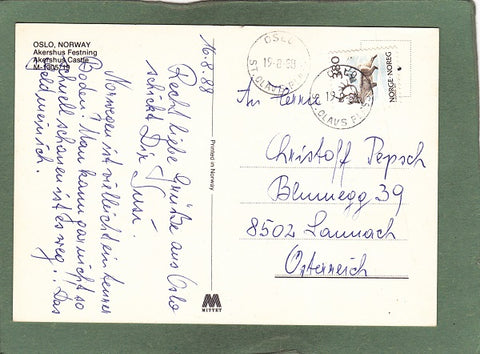 OSLO, NORWAY
Akershus Festning
Akershus Castle
16.8.88
Recht liebe Grüße aus Oslo
schickt Dir Susi.
Norwegen ist vielleicht ein teurer
Boden! Man kann gar nicht so
schnell schauen ist es weg! Das
Geld mein ich.
Printed in Norway
MITTET
OSLO
ST. OLAVS PLASS
NORGE NOREG
380
Christoff Pepsch
Blumegg 39
8502 Lannach
Österreich